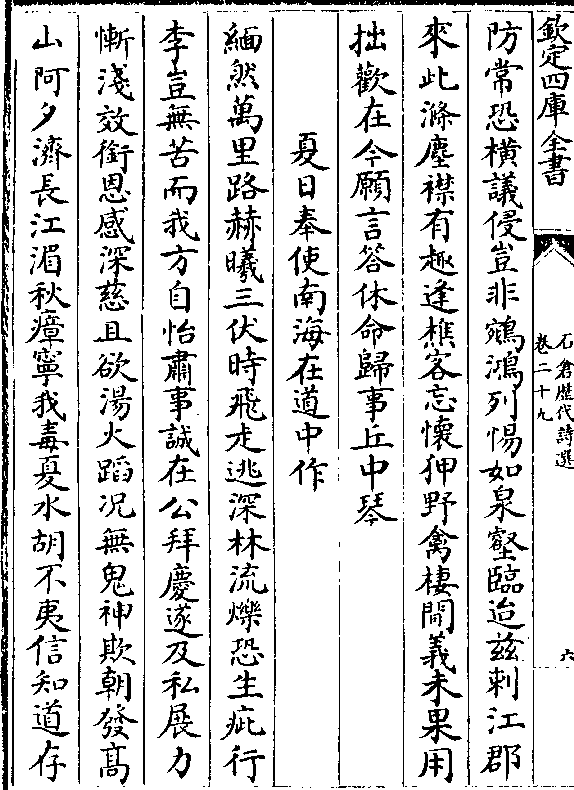 欽定四庫全書
石倉歷代詩選
卷二十九
六
防常恐横議侵豈非鵷鴻列惕如泉壑臨迨兹刺江郡
來此滌塵襟有趣逢樵客忘懐狎野禽棲閒義未果用
拙歡在今願言答休命歸事丘中琴
夏日奉使南海在道中作
緬然萬里路赫曦三伏時飛走逃深林流爍恐生疵行
李豈無苦而我方自怡肅事誠在公拜慶遂及私展力
慚淺效銜恩感深慈且欲湯火蹈况無鬼神欺朝發髙
山阿夕濟長江湄秋瘴寧我毒夏水胡不夷信知道存